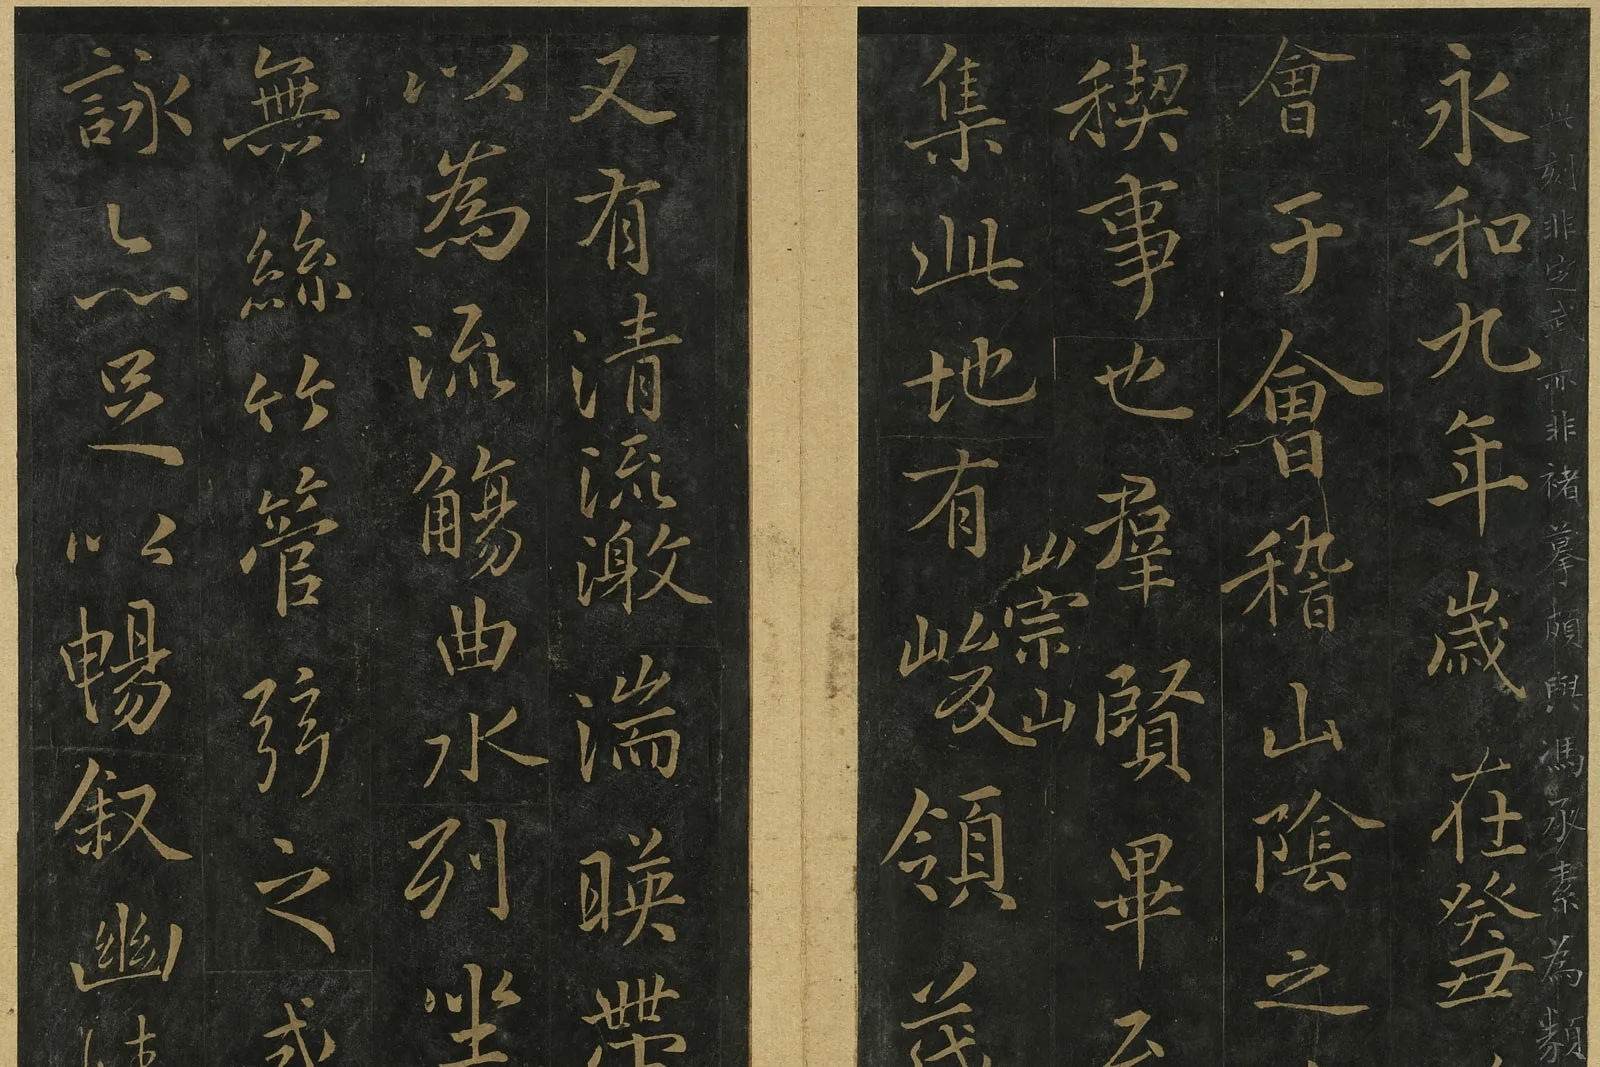 此刻非定武亦非褚摹頗與馮承素為類
永和九年歲在癸丑
會于會稽山陰之
稧事也羣賢畢至
崇山
集此地有峻領茂
又有清流激湍暎帶
以為流觴曲水列坐
無絲竹管弦之盛
詠亦足以暢叙幽情